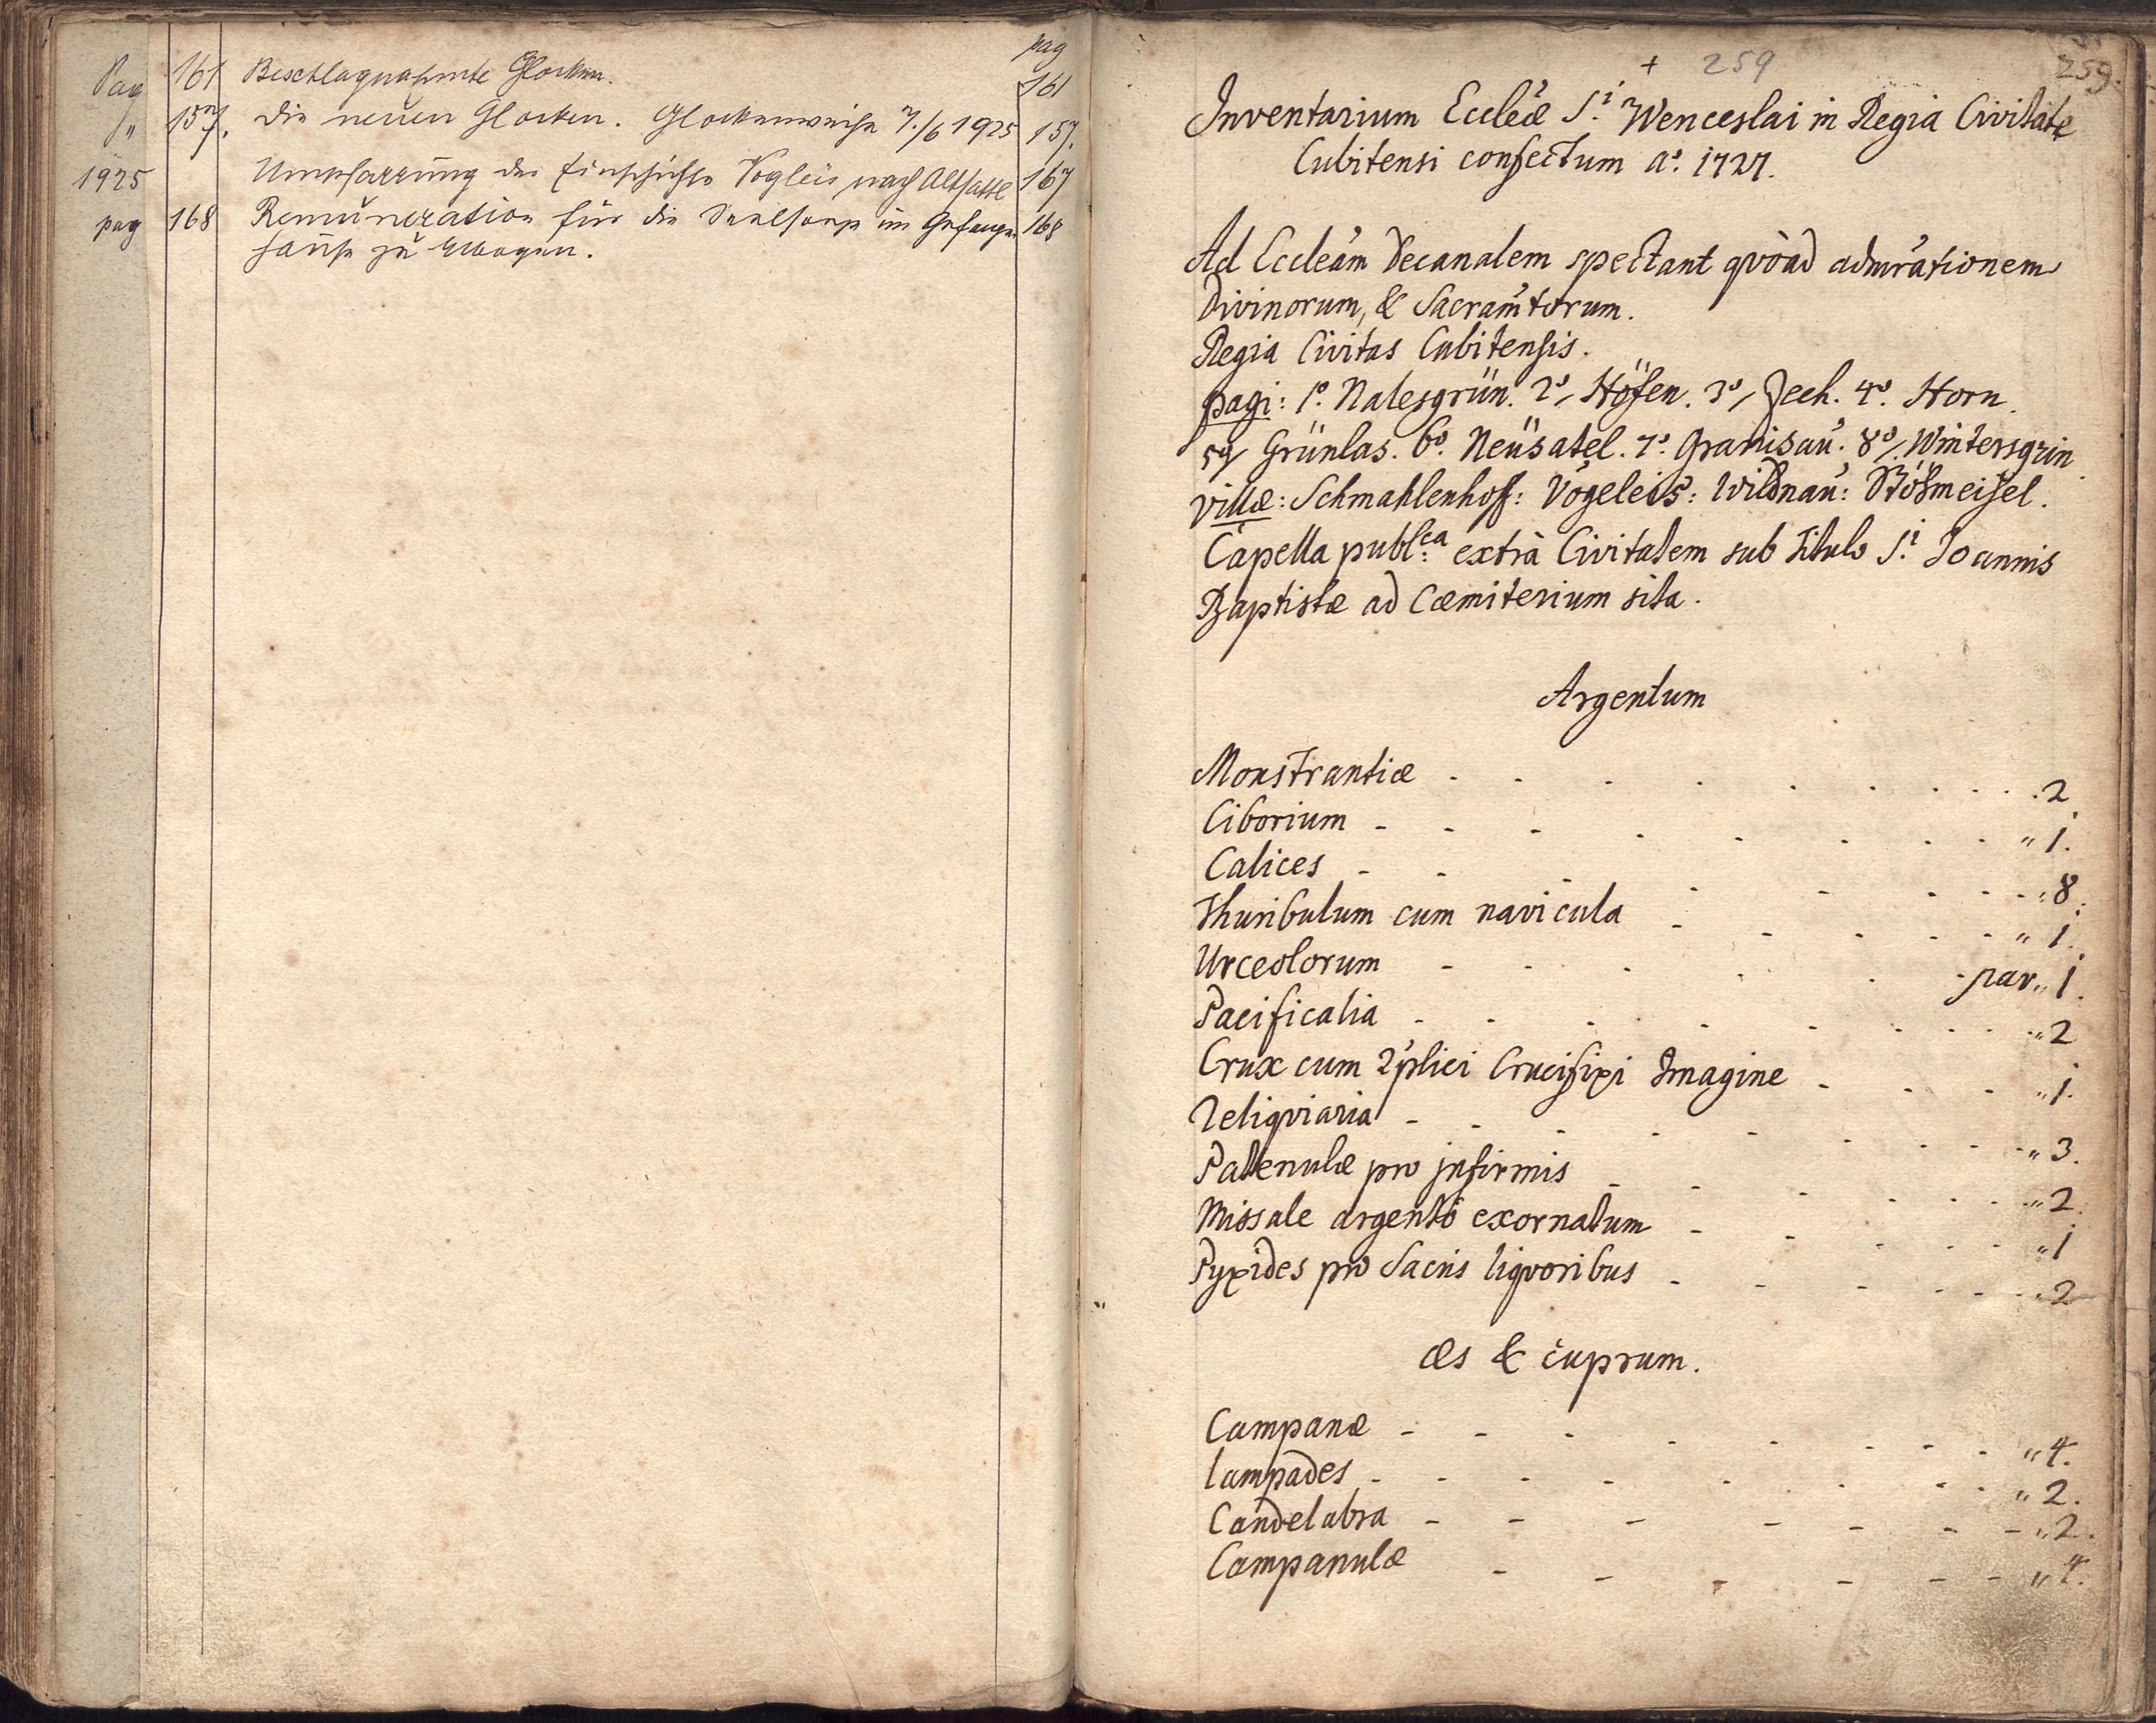 pag
Pag 161 Beschlagnahmte Glocken. 161
" 157. Die neuen Glocken. Glockenweihe 7./6 1925 157.
1925 Umpfarrung der Einschichte Vogleis nach Altsattl 167
pag 168 Remuneration für die Seelsorge im Gefangen 168
hause zu Elbogen.
+ 259 259.
Inventarium Eccleæ S.i Wenceslai in Regia Civitate
Cubitensi confectum ao. 1727.
Ad Eccleam Decanalem spectant qvòad admrationem
Divinorum, & Sacramtorum.
Regia Civitas Cubitensis.
pagi: 1o. Nalesgrün. 2o, Höfen. 3o, Zech. 4o. Horn.
5o, Grünlas. 6o. Neüsatel. 7o. Granisau. 8o, Wintersgrin
villæ: Schmahlenhoff: Vogeleis: Wildnau: Stösmeisel.
Capella publ:ca extrà Civitatem sub titulo S.i Joannis
Baptistæ ad Cæmiterium sita.
Argentum
Monstrantiæ . . . . . . . . . 2
Ciborium - - - - - . . . " 1.
Calices - - - - - . . . " 8.
Thuribulum cum navicula - - - - - " 1.
Urceolorum - - - . . par " 1.
Pacificalia - - - . . . . . " 2
Crux cum 2plici Crucifixi Imagine - - - " 1.
Reliqviaria - - - - - . . . " 3.
Patenulæ pro jnfirmis - - - . . . " 2.
Missale argento exornatum - - - - - " 1
Pyxides pro Sacris liqvoribus - - - - - " 2
Æs & cuprum.
Campanæ - - - - - - - - " 4.
lampades - - - - - - - - " 2.
Candelabra - - - - - - - " 2.
Campanulæ - - - - - - " 4.